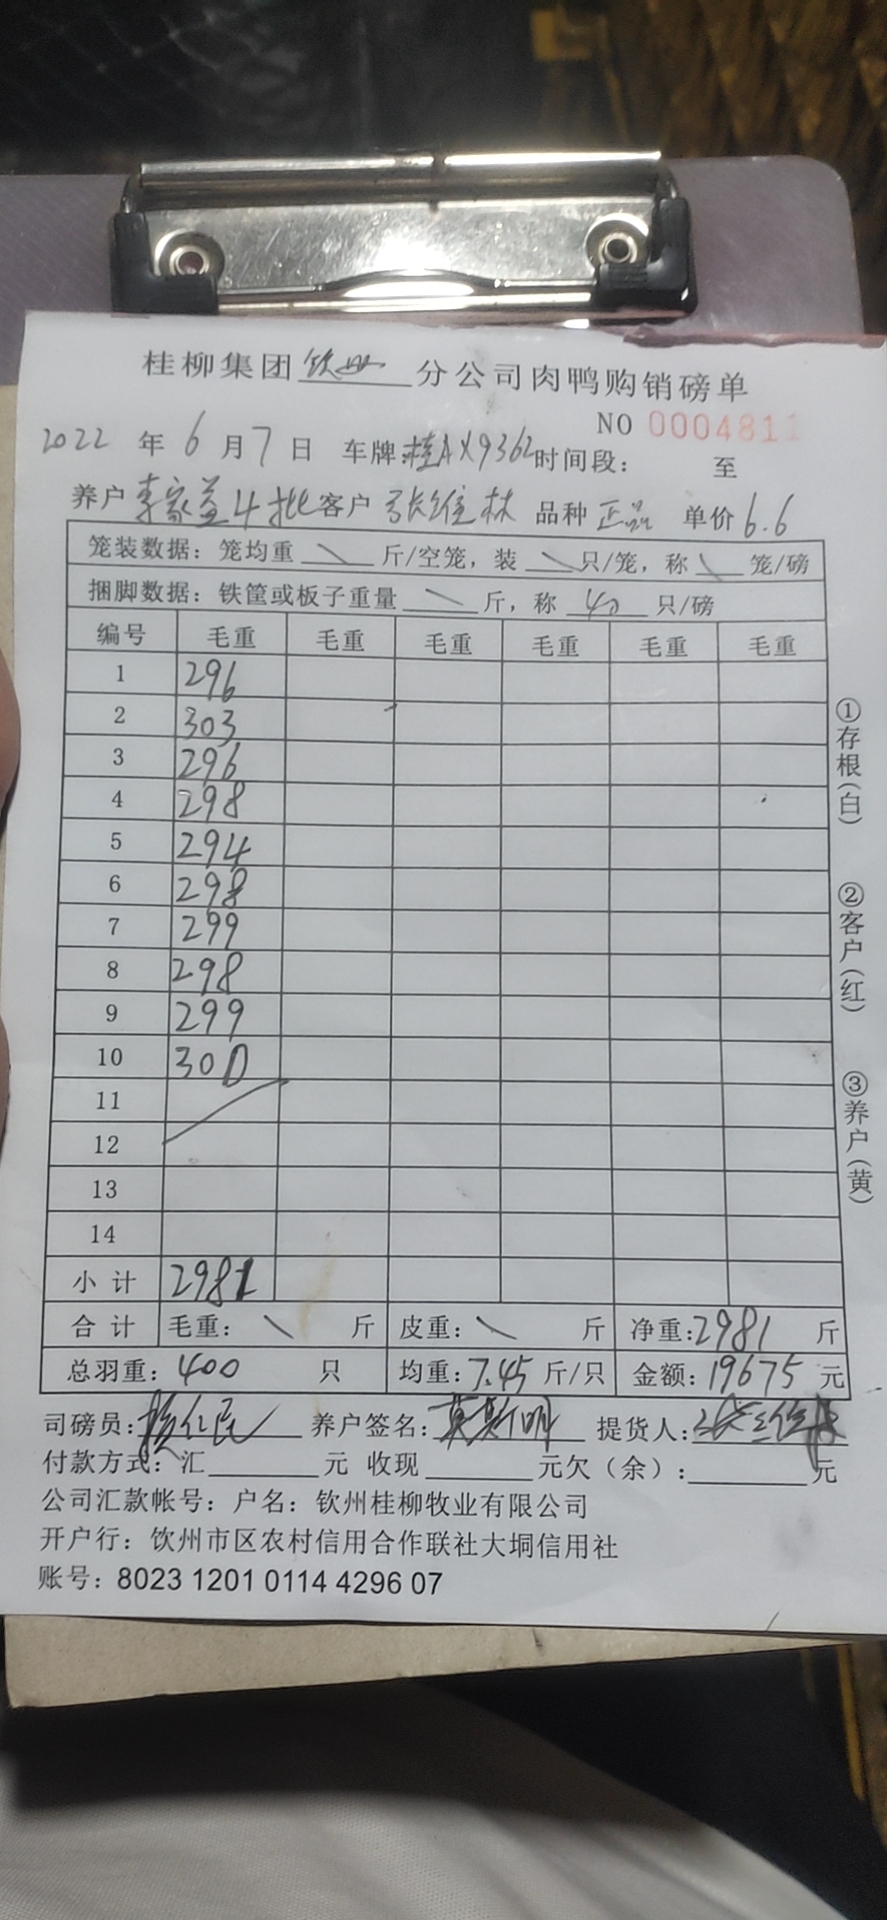 桂柳集团钦州分公司肉鸭购销磅单
NO 0004811
2022 年 6 月 7 日 车牌:桂AX9362 时间段: 至
养户 李家益4批 客户 张维林 品种 正品 单价 6.6
笼装数据:笼均重 \ 斤/空笼,装 \ 只/笼,称 \ 笼/磅
捆脚数据:铁筐或板子重量 \ 斤,称 40 只/磅
编号 毛重 毛重 毛重 毛重 毛重 毛重
1 296
2 303
3 296
4 298
5 294
6 298
7 299
8 298
9 299
10 300
11
12
13
14
小计 2981
合计 毛重: \ 斤 皮重: \ 斤 净重:2981 斤
总羽重:400 只 均重:7.45 斤/只 金额:19675 元
司磅员: 养户签名: 提货人:
付款方式:汇 元 收现 元欠(余): 元
公司汇款帐号:户名:钦州桂柳牧业有限公司
开户行:钦州市区农村信用合作联社大垌信用社
账号:8023 1201 0114 4296 07
①存根(白)
②客户(红)
③养户(黄)